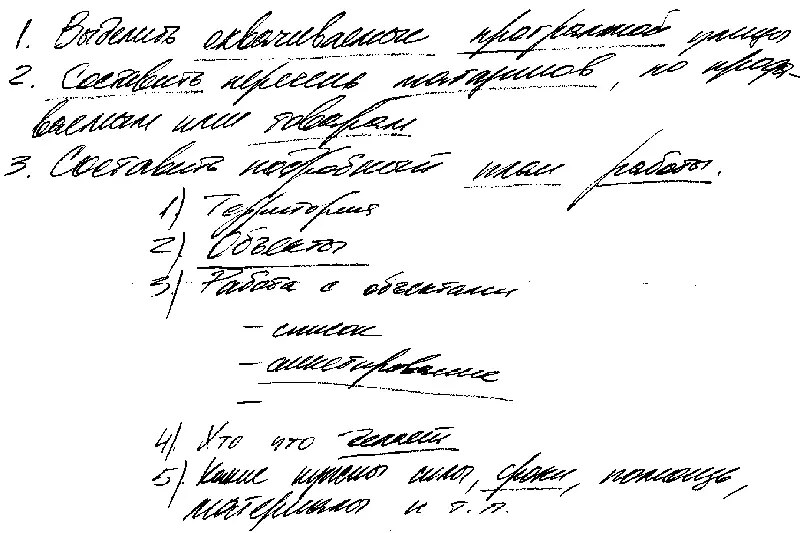 1. Выделить охватываемые программой улицы
2. Составить перечень материалов, по прода-
ваемым или товарам
3. Составить подробный план работы.
1) Территория
2) Объекты
3) Работа с объектами
- список
- анкетирование
-
4) Кто что делает
5) Какие нужны силы, сроки, помощь,
материалы и т.п.